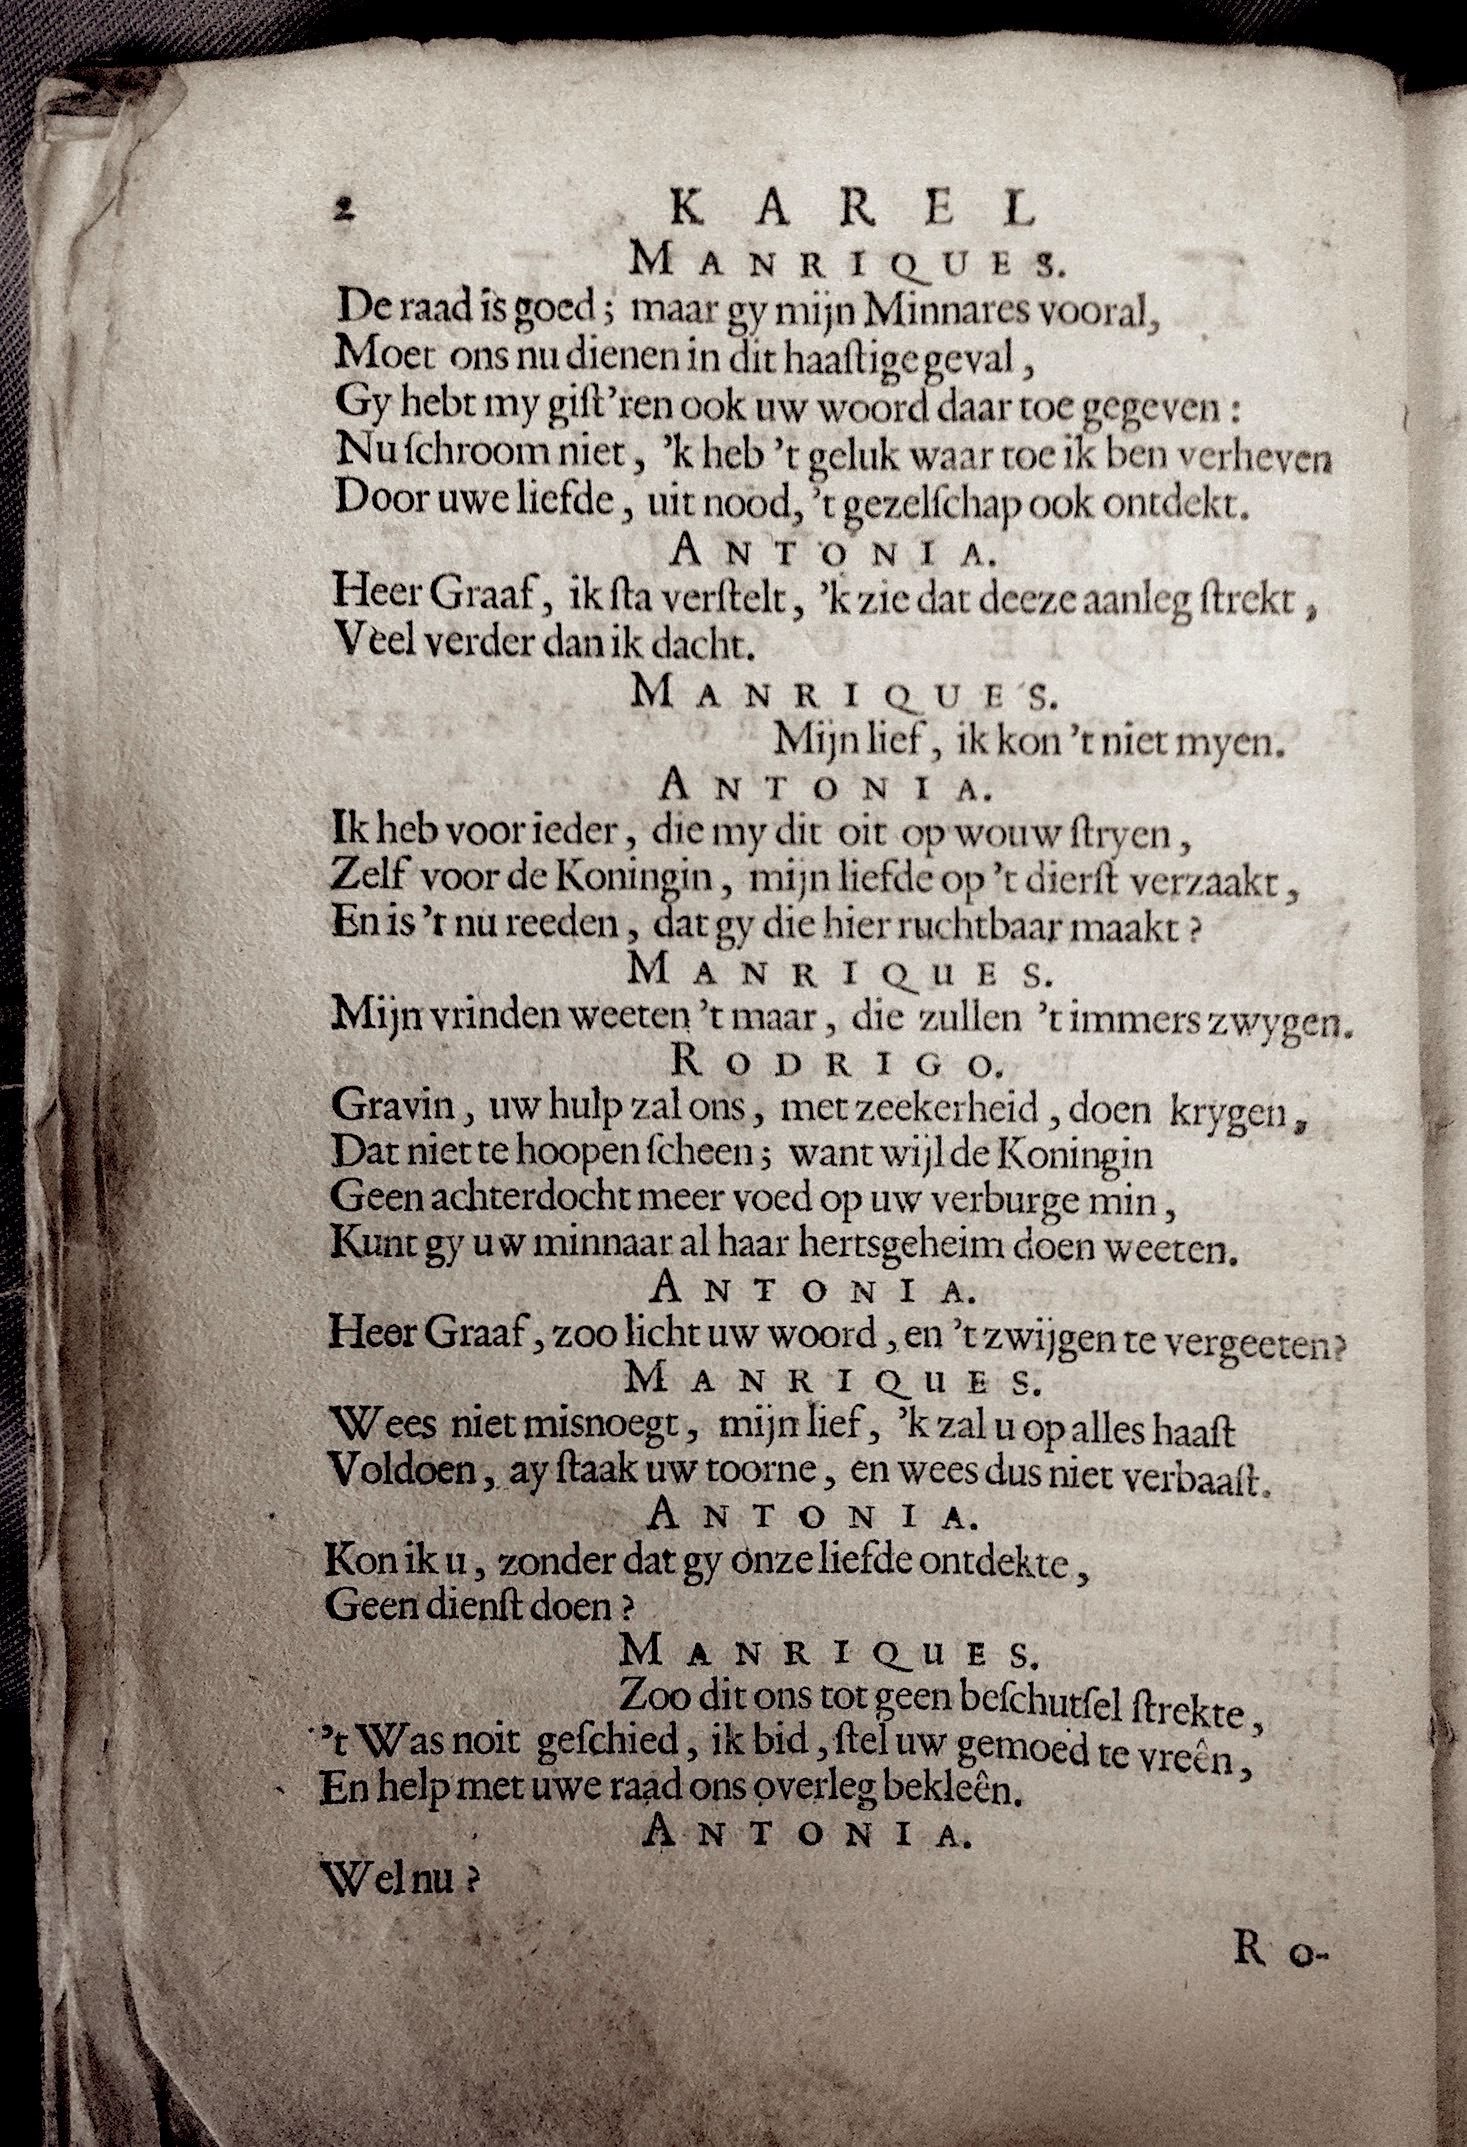 2 KAREL
MANRIQUES.
De raad is goed; maar gy mijn Minnares vooral,
Moet ons nu dienen in dit haaſtige geval,
Gy hebt my giſt'ren ook uw woord daar toe gegeven:
Nu ſchroom niet, 'k heb 't geluk waar toe ik ben verheven
Door uwe liefde, uit nood, 't gezelſchap ook ontdekt.
ANTONIA.
Heer Graaf, ik ſta verſtelt, 'k zie dat deeze aanleg ſtrekt,
Veel verder dan ik dacht.
MANRIQUES.
Mijn lief, ik kon 't niet myen.
ANTONIA.
Ik heb voor ieder, die my dit oit op wouw ſtryen,
Zelf voor de Koningin, mijn liefde op 't dierſt verzaakt,
En is 't nu reeden, dat gy die hier ruchtbaar maakt?
MANRIQUES.
Mijn vrinden weeten 't maar, die zullen 't immers zwygen.
RODRIGO.
Gravin, uw hulp zal ons, met zeekerheid, doen krygen,
Dat niet te hoopen ſcheen; want wijl de Koningin
Geen achterdocht meer voed op uw verburge min,
Kunt gy uw minnaar al haar hertsgeheim doen weeten.
ANTONIA.
Heer Graaf, zoo licht uw woord, en 't zwijgen te vergeeten?
MANRIQUES.
Wees niet misnoegt, mijn lief, 'k zal u op alles haaſt
Voldoen, ay ſtaak uw toorne, en wees dus niet verbaaſt.
ANTONIA.
Kon ik u, zonder dat gy onze liefde ontdekte,
Geen dienſt doen?
MANRIQUES.
Zoo dit ons tot geen beſchutſel ſtrekte,
't Was noit geſchied, ik bid, ſtel uw gemoed te vreên,
En help met uwe raad ons overleg bekleên.
ANTONIA.
Wel nu?
RO-